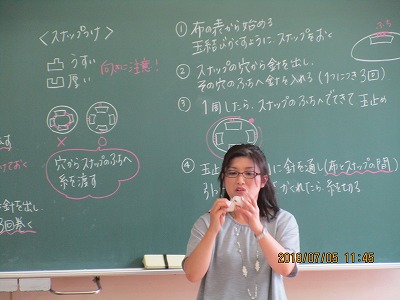 <スナップつけ>
うすい
厚い
向きに注意！
× ○
穴からスナップのふちへ
糸を渡す
けておく
針を出し、
3回巻く
① 布の表から始める
玉結びかくすように、スナップをおく
② スナップの穴から針を出し、
その穴のふちへ針を入れる (1つにつき3回)
③ 1周したら、スナップのふちへできて玉止め
④ 玉止
に針を通し(布とスナップの間)
かくれたら、糸を切る
2018/07/05 11:45